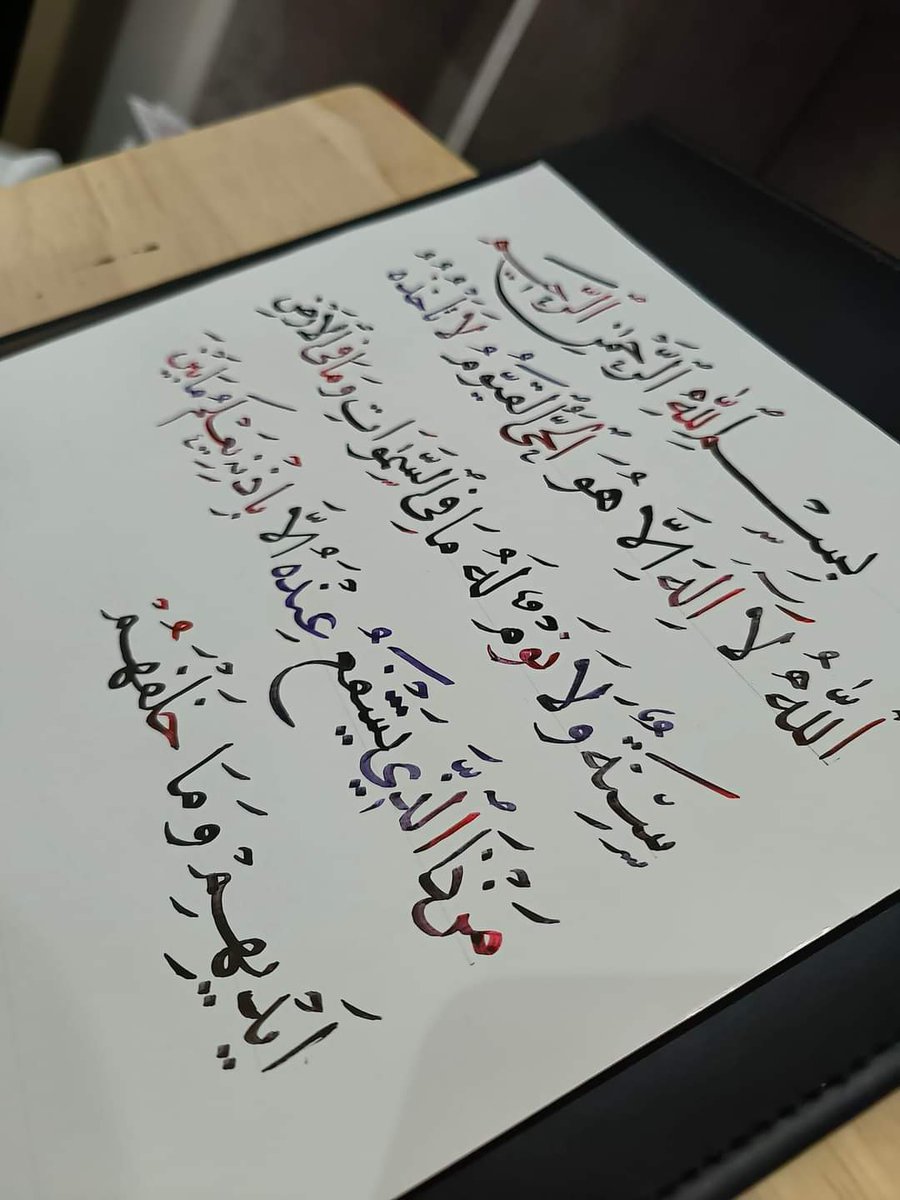 بِسْمِ اللَّهِ الرَّحْمَٰنِ الرَّحِيمِ
اللَّهُ لَا إِلَهَ إِلَّا هُوَ الْحَيُّ الْقَيُّومُ لَا تَأْخُذُهُ
سِنَةٌ وَلَا نَوْمٌ لَهُ مَا فِي السَّمٰوَاتِ وَمَا فِي الْأَرْضِ
مَنْ ذَا الَّذِي يَشْفَعُ عِنْدَهُ إِلَّا بِإِذْنِهِ يَعْلَمُ مَا بَيْنَ
أَيْدِيهِمْ وَمَا خَلْفَهُمْ